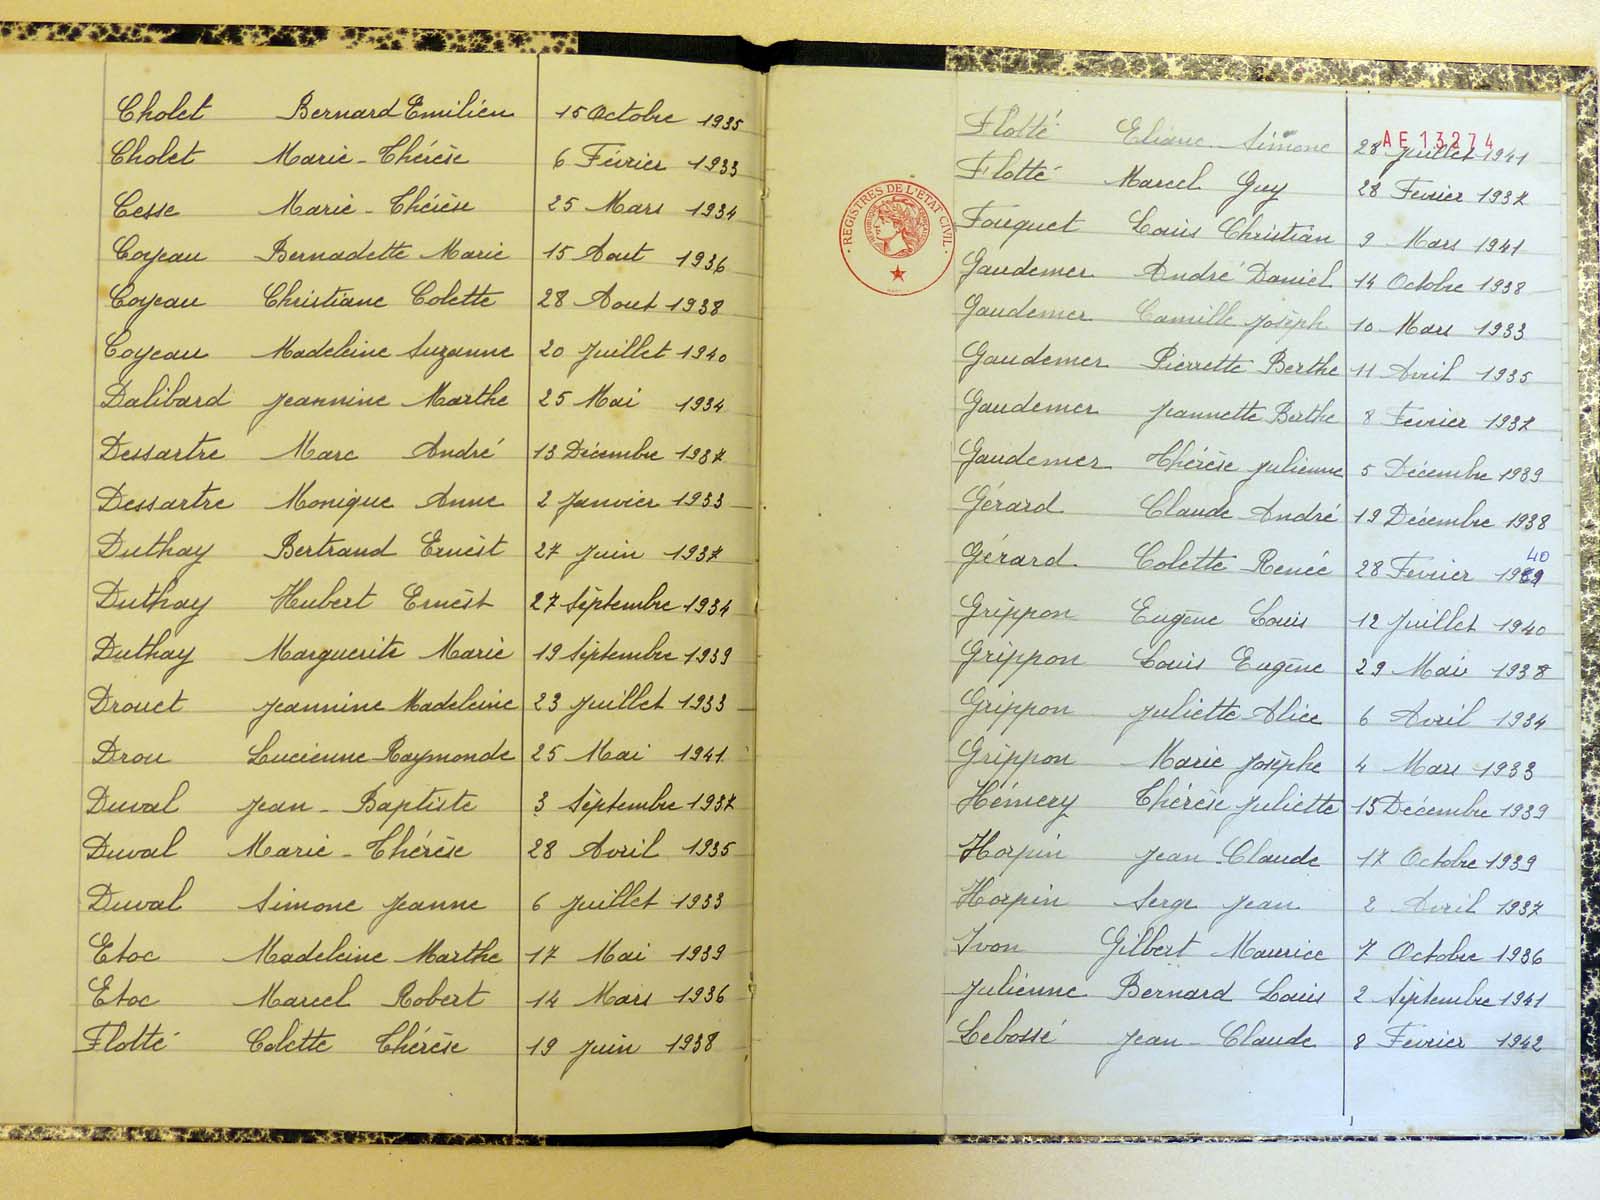 Cholet Bernard Emilien 15 Octobre 1935
Cholet Marie-Thérèse 6 Février 1933
Cesse Marie-Thérèse 25 Mars 1934
Coyeau Bernadette Marie 15 Aout 1936
Coyeau Christiane Colette 28 Aout 1938
Coyeau Madeleine Suzanne 20 Juillet 1940
Dalibard Jeannine Marthe 25 Mai 1934
Dessartre Marc André 13 Décembre 1937
Dessartre Monique Anne 2 Janvier 1933
Duthay Bertrand Ernest 27 Juin 1937
Duthay Hubert Ernest 27 Septembre 1934
Duthay Marguerite Marie 19 Septembre 1939
Drouet Jeannine Madeleine 23 Juillet 1933
Drou Lucienne Raymonde 25 Mai 1941
Duval Jean-Baptiste 3 Septembre 1937
Duval Marie-Thérèse 28 Avril 1935
Duval Simone Jeanne 6 Juillet 1933
Etoc Madeleine Marthe 17 Mai 1939
Etoc Marcel Robert 14 Mars 1936
Flotté Colette Thérèse 19 Juin 1938
REGISTRES DE L'ETAT CIVIL
AE13274
Flotté Eliane Simone 28 Juillet 1941
Flotté Marcel Guy 28 Fevrier 1937
Fouquet Louis Christian 9 Mars 1941
Gaudemer André Daniel 14 Octobre 1938
Gaudemer Camille Joseph 10 Mars 1933
Gaudemer Pierrette Berthe 11 Avril 1935
Gaudemer Jeannette Berthe 8 Fevrier 1937
Gaudemer Thérèse Julienne 5 Décembre 1939
Gérard Claude André 19 Décembre 1938
40
Gérard Colette Renée 28 Fevrier 1939
Grippon Eugène Louis 12 Juillet 1940
Grippon Louis Eugène 29 Mai 1938
Grippon Juliette Alice 6 Avril 1934
Grippon Marie Josèphe 4 Mars 1933
Hémery Thérèse Juliette 13 Décembre 1939
Horpin Jean Claude 17 Octobre 1939
Horpin Serge Jean 2 Avril 1937
Ivon Gilbert Maurice 7 Octobre 1936
Julienne Bernard Louis 2 Septembre 1941
Lebossé Jean-Claude 8 Fevrier 1942